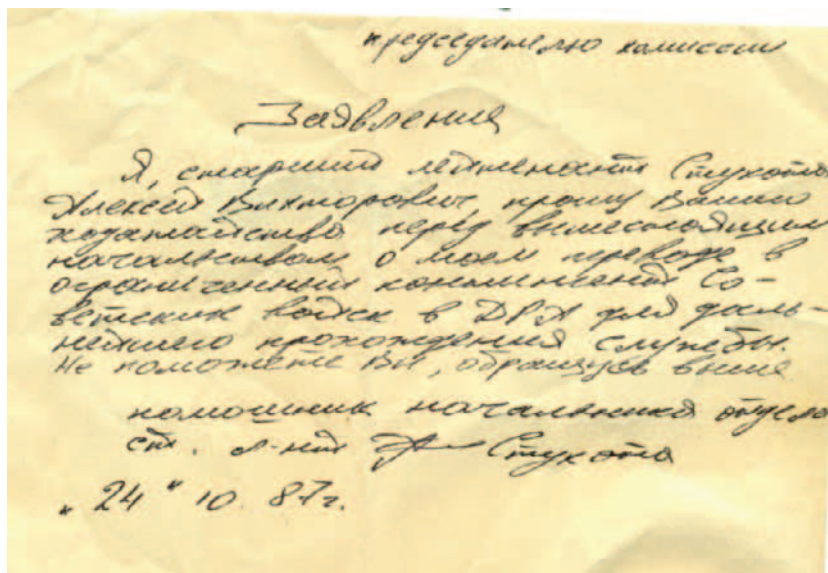 председателю комиссии
Заявления
Я, старший лейтенант Стукота
Алексей Викторович прошу Вашего
ходатайства перед вышестоящим
начальством о моем переводе в
ограниченный контингент Со-
ветских войск в ДРА для даль-
нейшего прохождения службы.
Не поможете Вы, обращусь выше
помошник начальника отдела
ст. л-нт Стукота
"24" 10 87г.